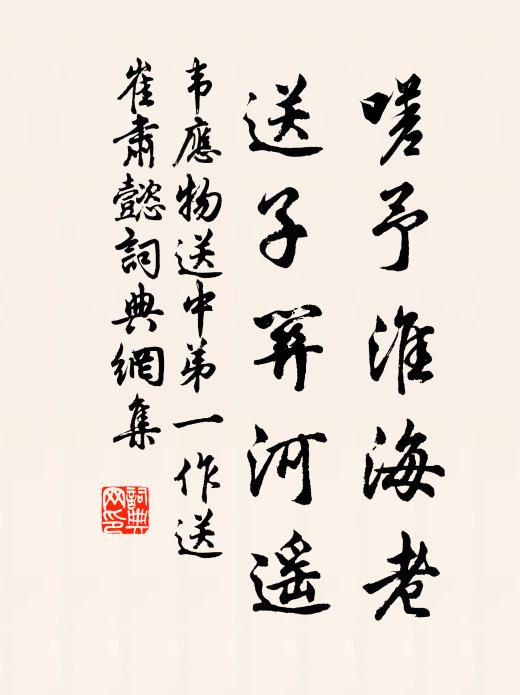 嗟予淮海老
送子關河遥
韦應物送中弟一作送
崔肃懿詞典網集
詞典网印